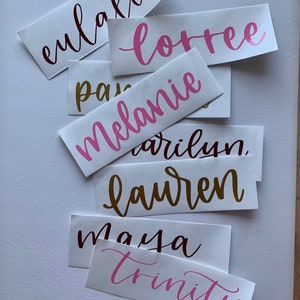 corree
melanie
marilyn
lauren
maya
trinity